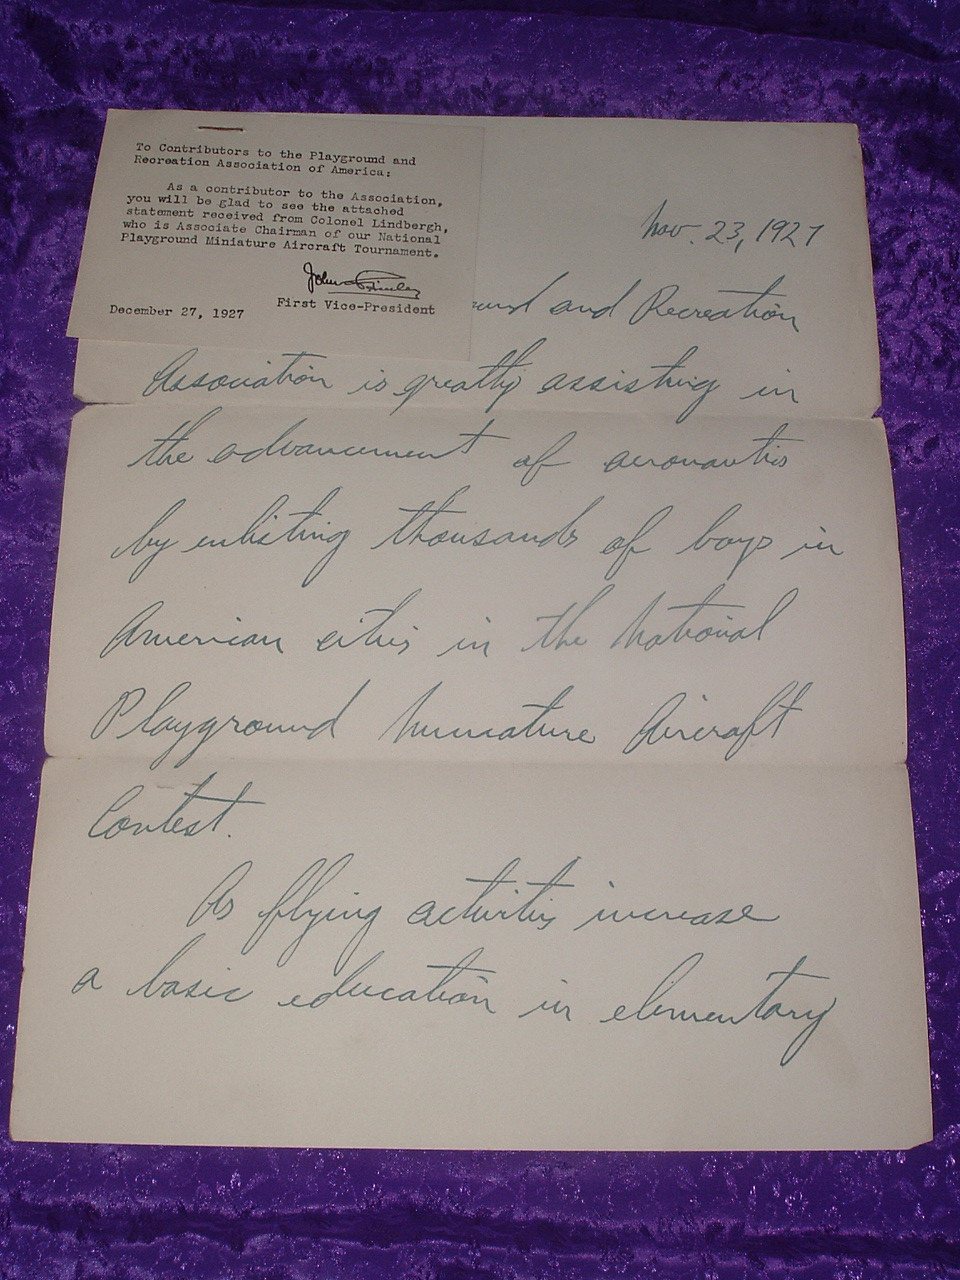 To Contributors to the Playground and
Recreation Association of America:
As a contributor to the Association,
you will be glad to see the attached
statement received from Colonel Lindbergh,
who is Associate Chairman of our National
Playground Miniature Aircraft Tournament.
John Finley
First Vice-President
December 27, 1927
Nov. 23, 1927
and Recreation
Association is greatly assisting in
the advancement of aeronautics
by enlisting thousands of boys in
American cities in the National
Playground Miniature Aircraft
Contest.
As flying activities increase
a basic education in elementary